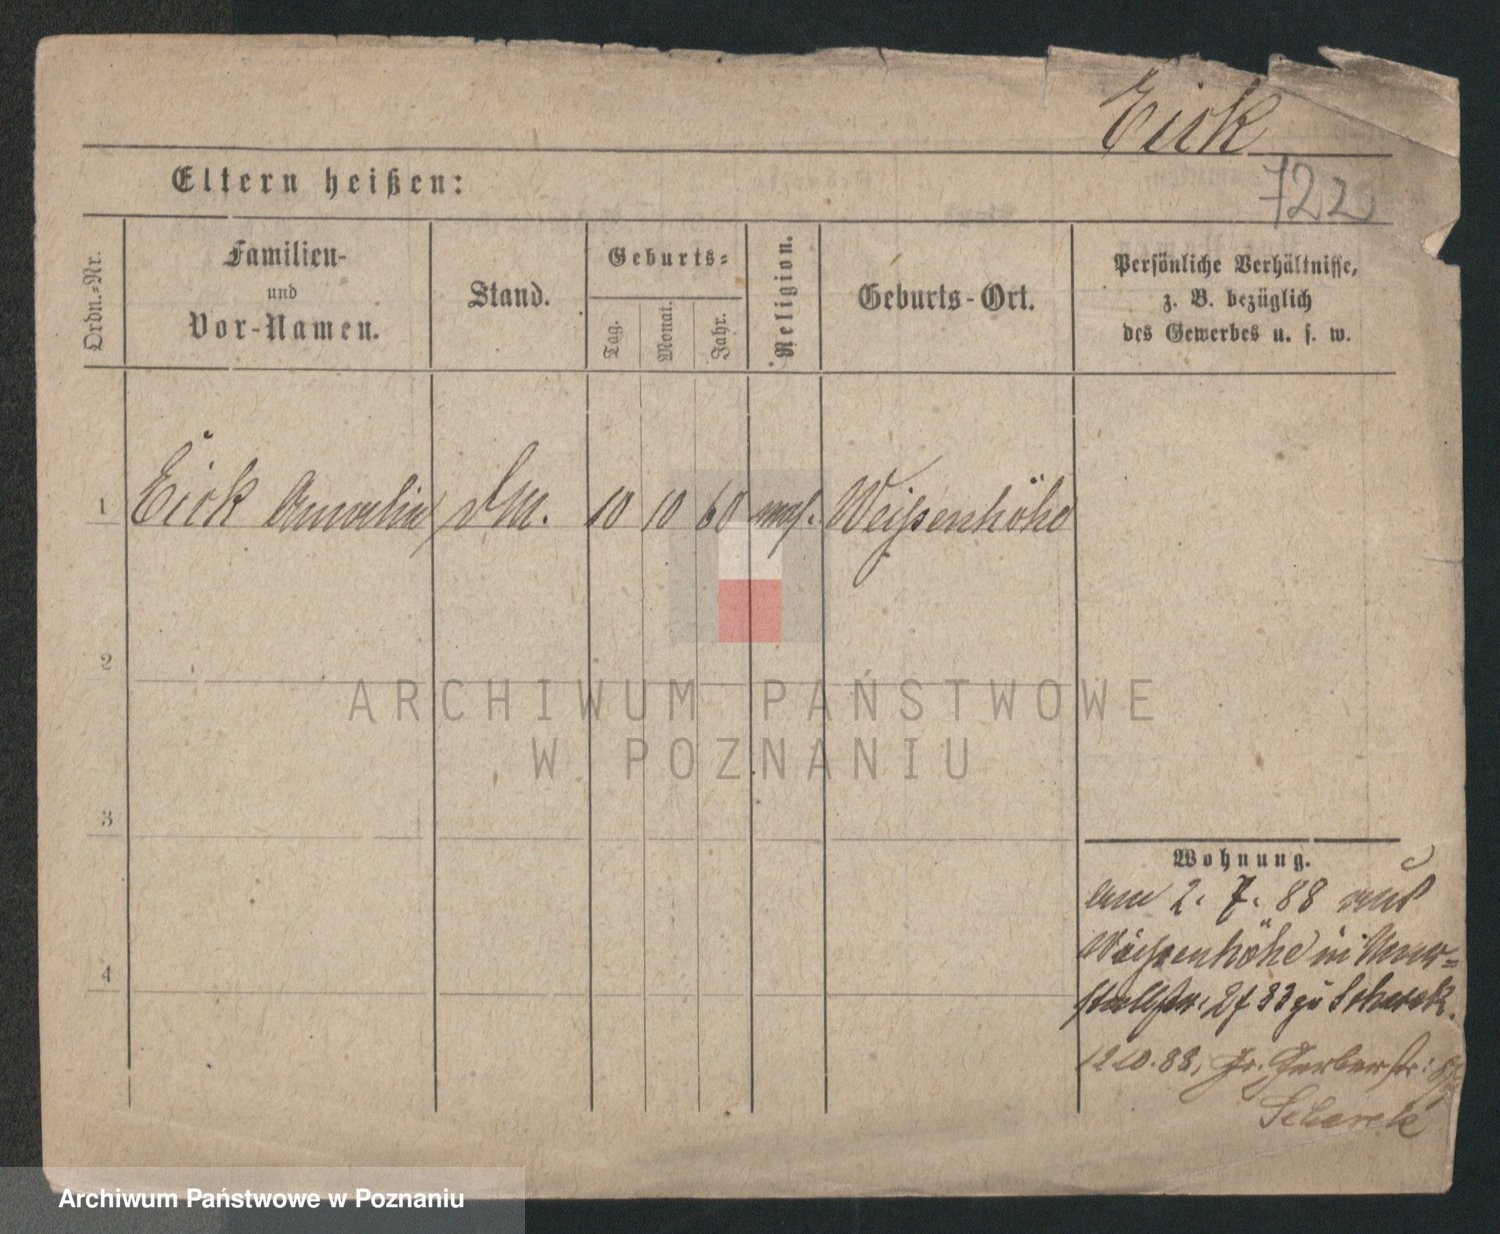 Eick
Eltern heißen:
722
Ordn.-Nr.
Familien-
und
Vor-Namen.
Stand.
Geburts-
Tag.
Monat.
Jahr.
Religion.
Geburts-Ort.
Persönliche Verhältnisse,
z. B. bezüglich
des Gewerbes u. s. w.
1 Eick Amalie DM. 10 10 60 Weißenhöhe
2
3
4
Wohnung.
am 2. 7. 88 aus
Weißenhöhe in
zu
12 10. 88, Gr. Gerberstr:
ARCHIWUM PAŃSTWOWE
W POZNANIU
Archiwum Państwowe w Poznaniu